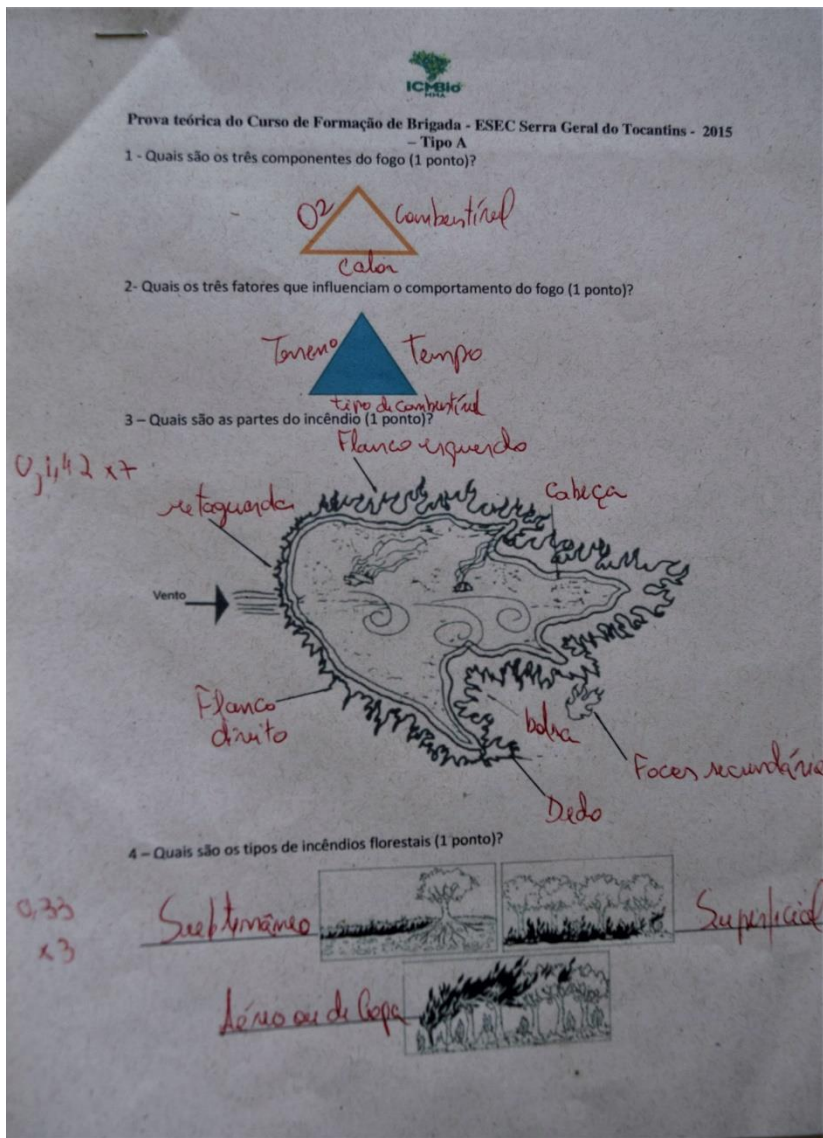 ICMBio
MMA
Prova teórica do Curso de Formação de Brigada - ESEC Serra Geral do Tocantins - 2015
– Tipo A
1 - Quais são os três componentes do fogo (1 ponto)?
O2 Combustível
Calor
2- Quais os três fatores que influenciam o comportamento do fogo (1 ponto)?
Terreno Tempo
tipo de combustível
3 – Quais são as partes do incêndio (1 ponto)?
Flanco esquerdo
0,1,42 x7
retaguarda
Cabeça
Vento
Flanco
direito
bolsa
Focos secundários
Dedo
4 – Quais são os tipos de incêndios florestais (1 ponto)?
0,33
x3
Subterrâneo Superficial
Aéreo ou de Copa